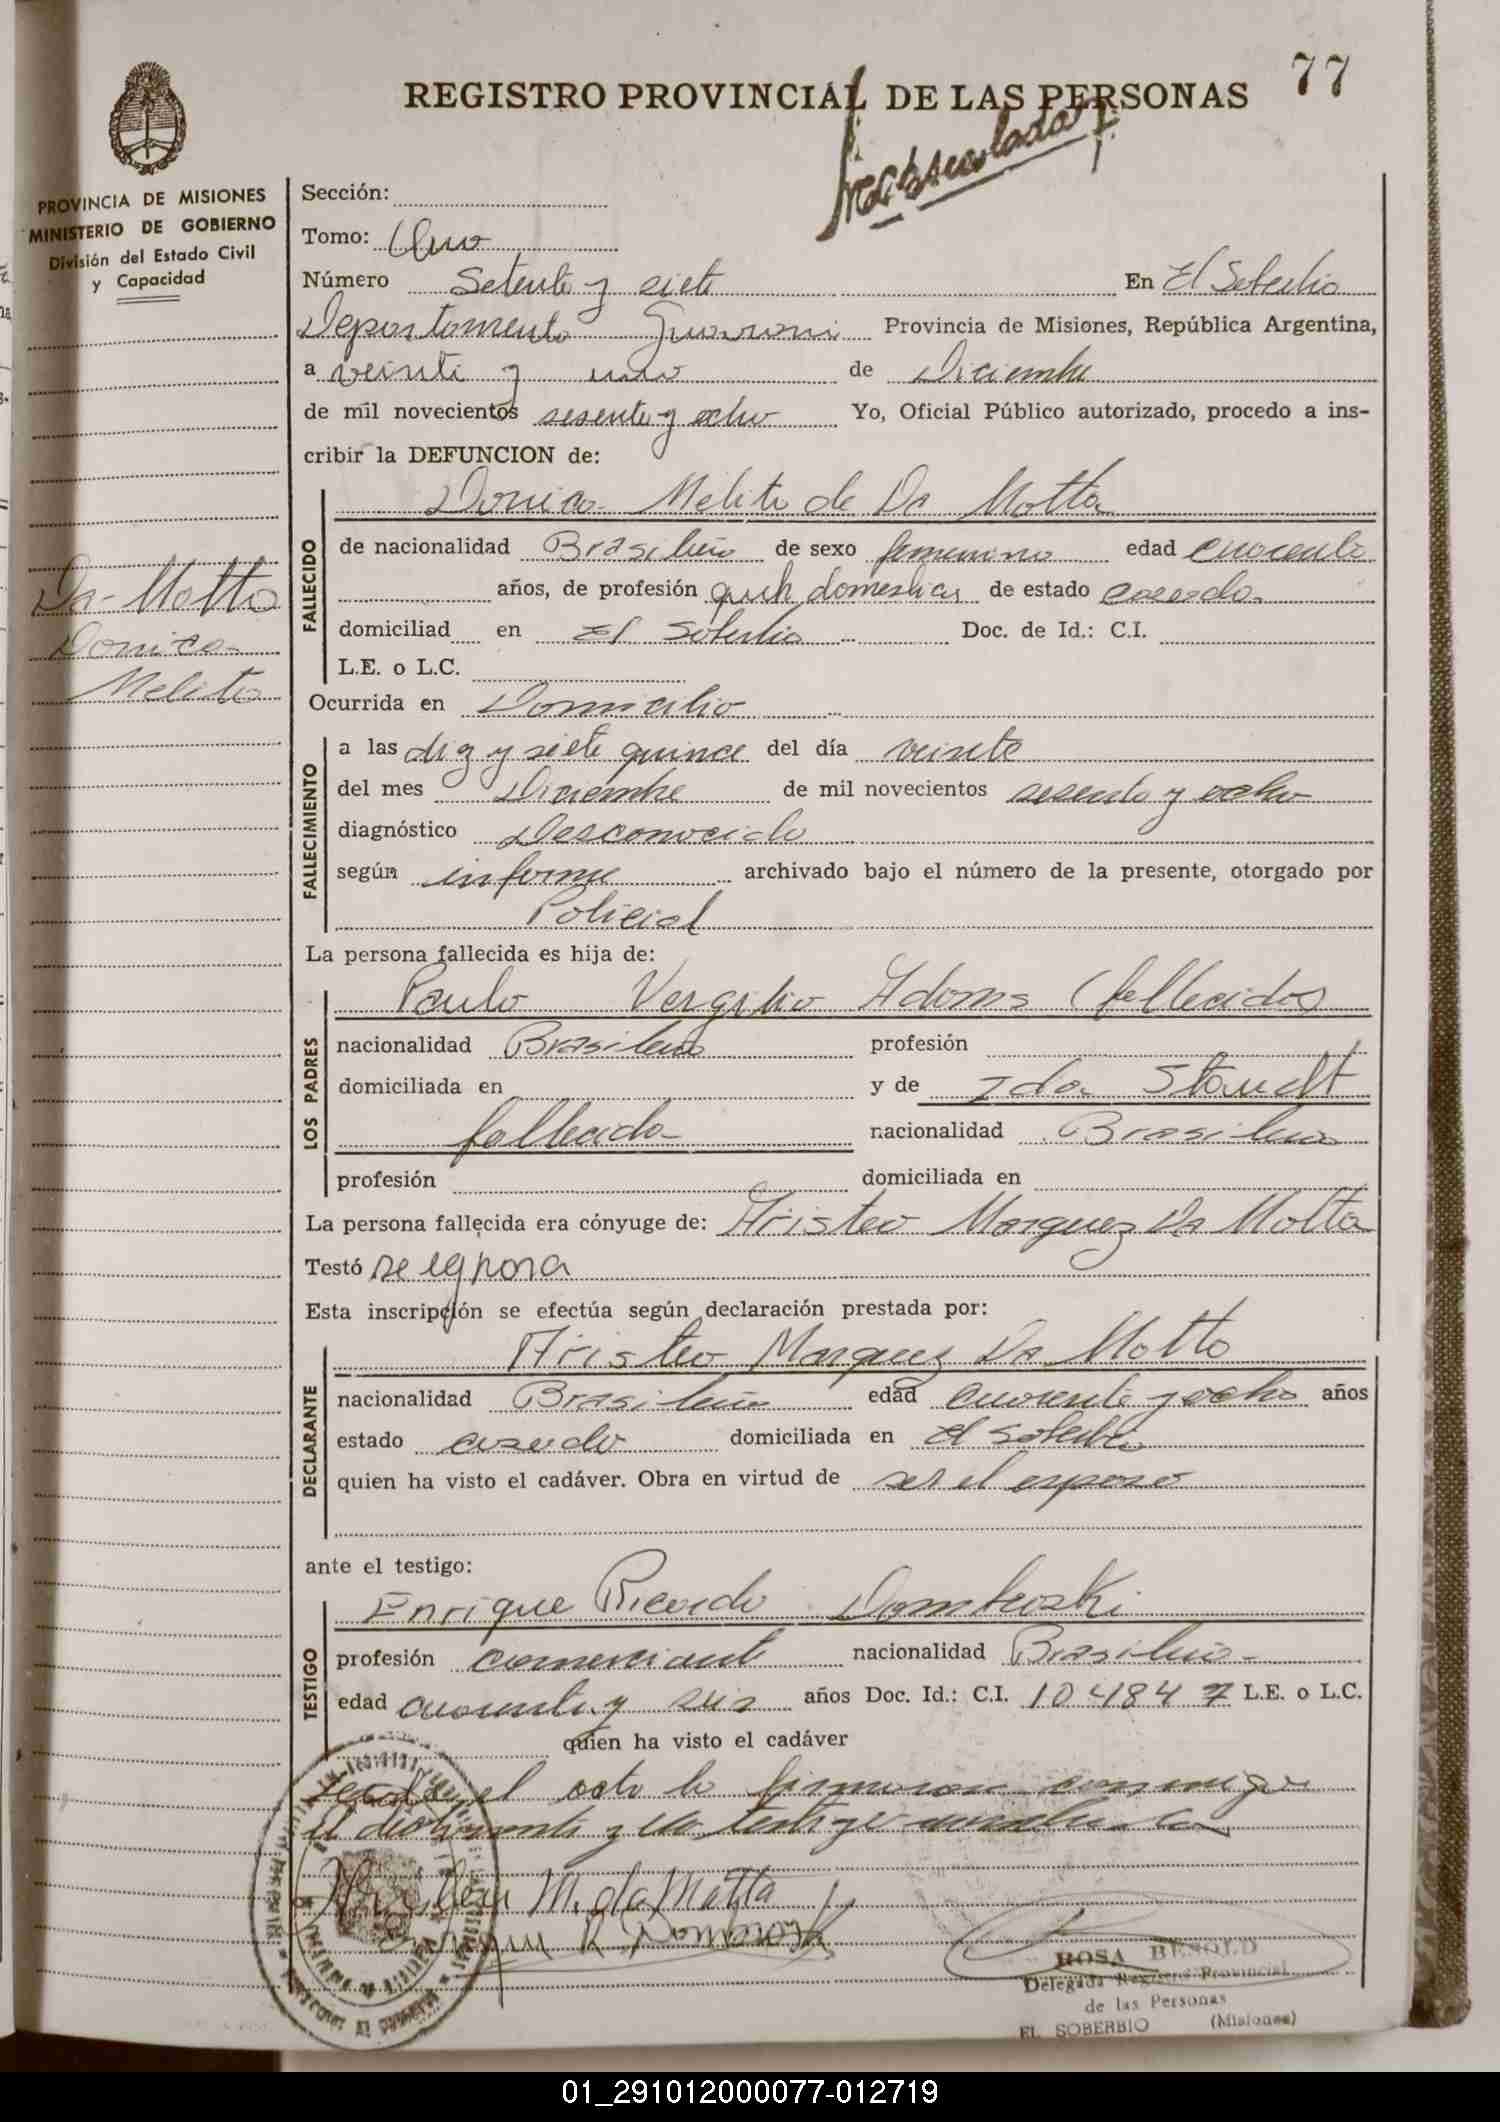 77
REGISTRO PROVINCIAL DE LAS PERSONAS
PROVINCIA DE MISIONES
MINISTERIO DE GOBIERNO
División del Estado Civil
y Capacidad
Da-Motta
Donica
Melita
Sección:
Tomo: Uno
Número Setenta y siete En El Soberbio
Departamento Guarani Provincia de Misiones, República Argentina,
a veinti y uno de Diciembre
de mil novecientos sesenta y ocho Yo, Oficial Público autorizado, procedo a ins-
cribir la DEFUNCION de:
Donica Melita de Da Motta
FALLECIDO
de nacionalidad Brasileña de sexo femenino edad cuarenta
años, de profesión queh domesticos de estado casada
domiciliad en El Soberbio Doc. de Id.: C.I.
L.E. o L.C.
Ocurrida en Domicilio
FALLECIMIENTO
a las diez y siete quince del día veinte
del mes Diciembre de mil novecientos sesenta y ocho
diagnóstico Desconocido
según informe archivado bajo el número de la presente, otorgado por
Policial
La persona fallecida es hija de:
LOS PADRES
Paulo Vergilio Adams (fallecido)
nacionalidad Brasilena profesión
domiciliada en y de Ida Staudt
fallecida nacionalidad Brasilena
profesión domiciliada en
La persona fallecida era cónyuge de: Aristeo Marquez Da Motta
Testó se ignora
Esta inscripción se efectúa según declaración prestada por:
DECLARANTE
Aristeo Marquez Da Motta
nacionalidad Brasileña edad cuarenta y ocho años
estado casado domiciliada en El Soberbio
quien ha visto el cadáver. Obra en virtud de ser el esposo
ante el testigo:
TESTIGO
Enrique Ricardo Dombroski
profesión comerciante nacionalidad Brasileña
edad cuarenta y seis años Doc. Id.: C.I. 104847 L.E. o L.C.
quien ha visto el cadáver
el acta la firmaron conmigo
el declarante y el testigo
M. da Motta
ROSA BENOLD
Delegada Registro Provincial
de las Personas
EL SOBERBIO (Misiones)
01_291012000077-012719